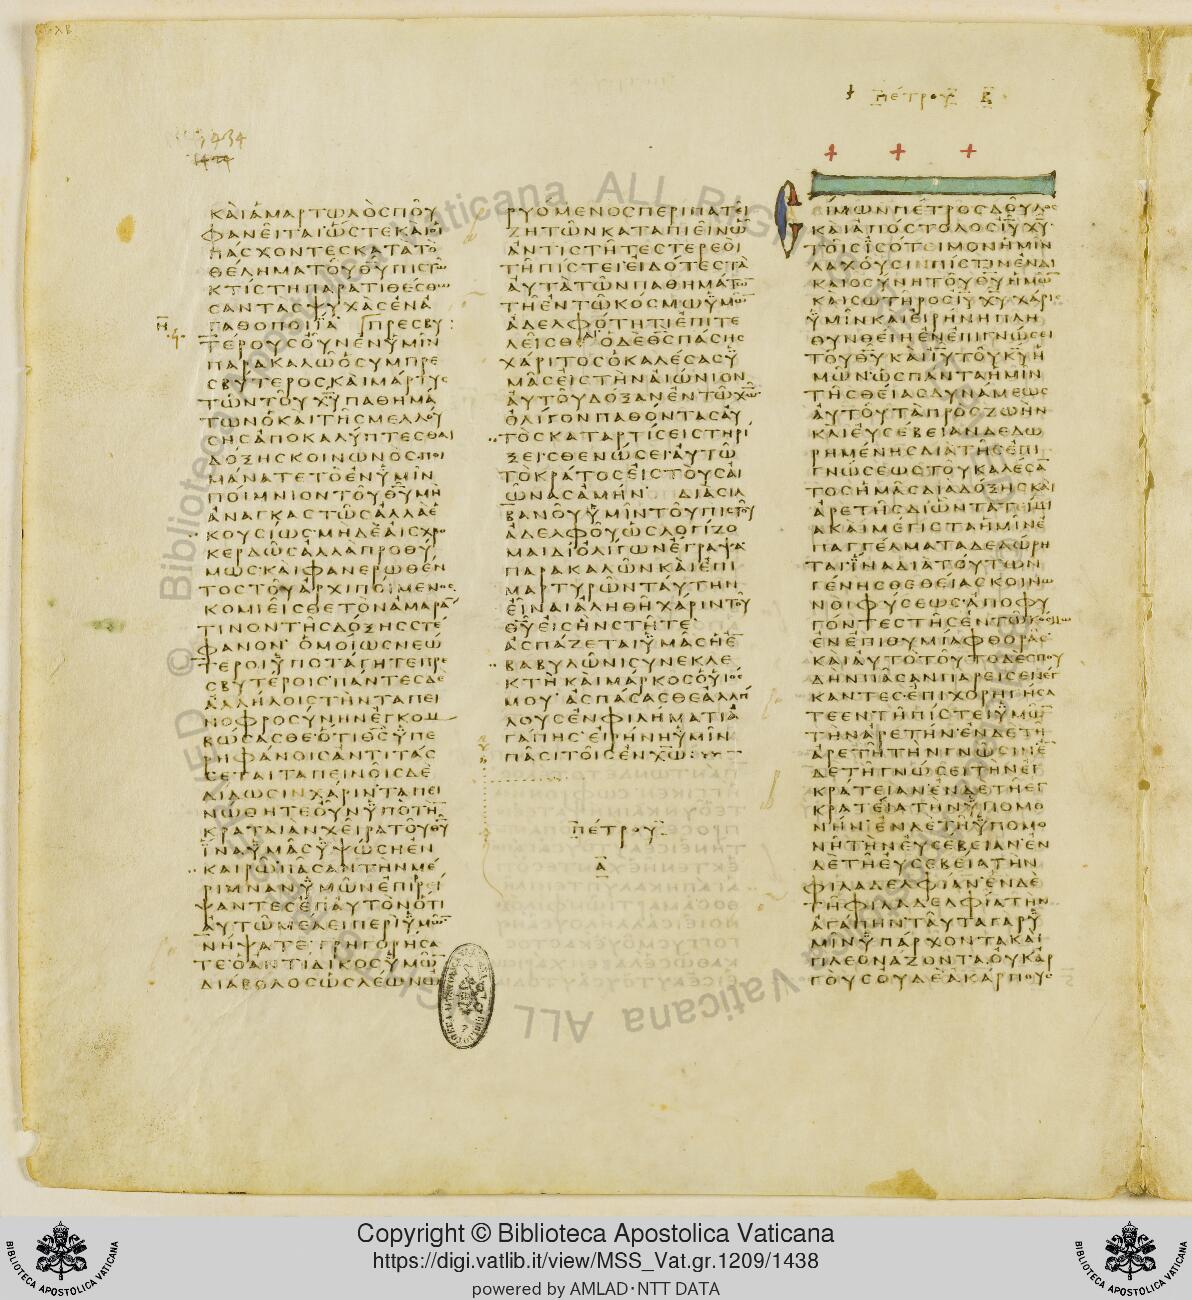 1434
ΠΕΤΡΟΥ Β
ΚΑΙΑΜΑΡΤΩΛΟΣΠΟΥ
ΦΑΝΕΙΤΑΙΩΣΤΕΚΑΙΟΙ
ΠΑΣΧΟΝΤΕΣΚΑΤΑΤΟ
ΘΕΛΗΜΑΤΟΥΘΥΠΙΣΤΩ
ΚΤΙΣΤΗΠΑΡΑΤΙΘΕΣΘΩ
ΣΑΝΤΑΣΨΥΧΑΣΕΝΑ
ΓΑΘΟΠΟΙΪΑ ΠΡΕΣΒΥ
ΤΕΡΟΥΣΟΥΝΕΝΥΜΙΝ
ΠΑΡΑΚΑΛΩΟΣΥΜΠΡΕ
ΣΒΥΤΕΡΟΣΚΑΙΜΑΡΤΥΣ
ΤΩΝΤΟΥΧΥΠΑΘΗΜΑ
ΤΩΝΟΚΑΙΤΗΣΜΕΛΛΟΥ
ΣΗΣΑΠΟΚΑΛΥΠΤΕΣΘΑΙ
ΔΟΞΗΣΚΟΙΝΩΝΟΣΠΟΙ
ΜΑΝΑΤΕΤΟΕΝΥΜΙΝ
ΠΟΙΜΝΙΟΝΤΟΥΘΥΜΗ
ΑΝΑΓΚΑΣΤΩΣΑΛΛΑΕ
ΚΟΥΣΙΩΣΜΗΔΕΑΙΣΧΡΟ
ΚΕΡΔΩΣΑΛΛΑΠΡΟΘΥ
ΜΩΣΚΑΙΦΑΝΕΡΩΘΕΝ
ΤΟΣΤΟΥΑΡΧΙΠΟΙΜΕΝΟΣ
ΚΟΜΙΕΙΣΘΕΤΟΝΑΜΑΡΑ
ΤΙΝΟΝΤΗΣΔΟΞΗΣΣΤΕ
ΦΑΝΟΝ ΟΜΟΙΩΣΝΕΩ
ΤΕΡΟΙΥΠΟΤΑΓΗΤΕΠΡΕ
ΣΒΥΤΕΡΟΙΣΠΑΝΤΕΣΔΕ
ΑΛΛΗΛΟΙΣΤΗΝΤΑΠΕΙ
ΝΟΦΡΟΣΥΝΗΝΕΓΚΟΜ
ΒΩΣΑΣΘΕΟΤΙΘΣΥΠΕ
ΡΗΦΑΝΟΙΣΑΝΤΙΤΑΣ
ΣΕΤΑΙΤΑΠΕΙΝΟΙΣΔΕ
ΔΙΔΩΣΙΝΧΑΡΙΝΤΑΠΕΙ
ΝΩΘΗΤΕΟΥΝΥΠΟΤΗ
ΚΡΑΤΑΙΑΝΧΕΙΡΑΤΟΥΘΥ
ΪΝΑΥΜΑΣΥΨΩΣΗΕΝ
ΚΑΙΡΩΠΑΣΑΝΤΗΝΜΕ
ΡΙΜΝΑΝΥΜΩΝΕΠΙΡΕΙ
ΨΑΝΤΕΣΕΠΑΥΤΟΝΟΤΙ
ΑΥΤΩΜΕΛΕΙΠΕΡΙΥΜΩ
ΝΗΨΑΤΕ ΓΡΗΓΟΡΗΣΑ
ΤΕΟΑΝΤΙΔΙΚΟΣΥΜΩ
ΔΙΑΒΟΛΟΣΩΣΛΕΩΝΩ
ΡΥΟΜΕΝΟΣΠΕΡΙΠΑΤΕΙ
ΖΗΤΩΝΚΑΤΑΠΙΕΙΝΩ
ΑΝΤΙΣΤΗΤΕΣΤΕΡΕΟΙ
ΤΗΠΙΣΤΕΙΕΙΔΟΤΕΣΤΑ
ΑΥΤΑΤΩΝΠΑΘΗΜΑΤΩ
ΤΗΕΝΤΩΚΟΣΜΩΥΜΩ
ΑΔΕΛΦΟΤΗΤΙΕΠΙΤΕ
ΛΕΙΣΘΑΙΟΔΕΘΣΠΑΣΗΣ
ΧΑΡΙΤΟΣΟΚΑΛΕΣΑΣΥ
ΜΑΣΕΙΣΤΗΝΑΙΩΝΙΟΝ
ΑΥΤΟΥΔΟΞΑΝΕΝΤΩΧΩ
ΟΛΙΓΟΝΠΑΘΟΝΤΑΣΑΥ
ΤΟΣΚΑΤΑΡΤΙΣΕΙΣΤΗΡΙ
ΞΕΙΣΘΕΝΩΣΕΙΑΥΤΩ
ΤΟΚΡΑΤΟΣΕΙΣΤΟΥΣΑΙ
ΩΝΑΣΑΜΗΝ ΔΙΑΣΙΛ
ΒΑΝΟΥΥΜΙΝΤΟΥΠΙΣΤΟΥ
ΑΔΕΛΦΟΥΩΣΛΟΓΙΖΟ
ΜΑΙΔΙΟΛΙΓΩΝΕΓΡΑΨΑ
ΠΑΡΑΚΑΛΩΝΚΑΙΕΠΙ
ΜΑΡΤΥΡΩΝΤΑΥΤΗΝ
ΕΙΝΑΙΑΛΗΘΗΧΑΡΙΝΤΟΥ
ΘΥΕΙΣΗΝΣΤΗΤΕ
ΑΣΠΑΖΕΤΑΙΥΜΑΣΗΕ
ΒΑΒΥΛΩΝΙΣΥΝΕΚΛΕ
ΚΤΗΚΑΙΜΑΡΚΟΣΟΥΙΟΣ
ΜΟΥ ΑΣΠΑΣΑΣΘΕΑΛΛΗ
ΛΟΥΣΕΝΦΙΛΗΜΑΤΙΑ
ΓΑΠΗΣΕΙΡΗΝΗΥΜΙΝ
ΠΑΣΙΤΟΙΣΕΝΧΩ
ΠΕΤΡΟΥ
Α
ΣΙΜΩΝΠΕΤΡΟΣΔΟΥΛΟΣ
ΚΑΙΑΠΟΣΤΟΛΟΣΙΥΧΥ
ΤΟΙΣΙΣΟΤΕΙΜΟΝΗΜΙΝ
ΛΑΧΟΥΣΙΝΠΙΣΤΙΝΕΝΔΙ
ΚΑΙΟΣΥΝΗΤΟΥΘΥΗΜΩ
ΚΑΙΣΩΤΗΡΟΣΙΥΧΥΧΑΡΙΣ
ΥΜΙΝΚΑΙΕΙΡΗΝΗΠΛΗ
ΘΥΝΘΕΙΗΕΝΕΠΙΓΝΩΣΕΙ
ΤΟΥΘΥΚΑΙΙΥΤΟΥΚΥΗ
ΜΩΝΩΣΠΑΝΤΑΗΜΙΝ
ΤΗΣΘΕΙΑΣΔΥΝΑΜΕΩΣ
ΑΥΤΟΥΤΑΠΡΟΣΖΩΗΝ
ΚΑΙΕΥΣΕΒΕΙΑΝΔΕΔΩ
ΡΗΜΕΝΗΣΔΙΑΤΗΣΕΠΙ
ΓΝΩΣΕΩΣΤΟΥΚΑΛΕΣΑ
ΤΟΣΗΜΑΣΔΙΑΔΟΞΗΣΚΑΙ
ΑΡΕΤΗΣΔΙΩΝΤΑΤΙΜΙ
ΑΚΑΙΜΕΓΙΣΤΑΗΜΙΝΕ
ΠΑΓΓΕΛΜΑΤΑΔΕΔΩΡΗ
ΤΑΙΪΝΑΔΙΑΤΟΥΤΩΝ
ΓΕΝΗΣΘΕΘΕΙΑΣΚΟΙΝΩ
ΝΟΙΦΥΣΕΩΣΑΠΟΦΥ
ΓΟΝΤΕΣΤΗΣΕΝΤΩΚΟΣΜΩ
ΕΝΕΠΙΘΥΜΙΑΦΘΟΡΑΣ
ΚΑΙΑΥΤΟΤΟΥΤΟΔΕΣΠΟΥ
ΔΗΝΠΑΣΑΝΠΑΡΕΙΣΕΝΕΓ
ΚΑΝΤΕΣΕΠΙΧΟΡΗΓΗΣΑ
ΤΕΕΝΤΗΠΙΣΤΕΙΥΜΩ
ΤΗΝΑΡΕΤΗΝΕΝΔΕΤΗ
ΑΡΕΤΗΤΗΝΓΝΩΣΙΝΕ
ΔΕΤΗΓΝΩΣΕΙΤΗΝΕΓ
ΚΡΑΤΕΙΑΝΕΝΔΕΤΗΕΓ
ΚΡΑΤΕΙΑΤΗΝΥΠΟΜΟ
ΝΗΝΕΝΔΕΤΗΥΠΟΜΟ
ΝΗΤΗΝΕΥΣΕΒΕΙΑΝΕΝ
ΔΕΤΗΕΥΣΕΒΕΙΑΤΗΝ
ΦΙΛΑΔΕΛΦΙΑΝΕΝΔΕ
ΤΗΦΙΛΑΔΕΛΦΙΑΤΗΝ
ΑΓΑΠΗΝΤΑΥΤΑΓΑΡΥ
ΜΙΝΥΠΑΡΧΟΝΤΑΚΑΙ
ΠΛΕΟΝΑΖΟΝΤΑΟΥΚΑΡ
ΓΟΥΣΟΥΔΕΑΚΑΡΠΟΥΣ
Copyright © Biblioteca Apostolica Vaticana
https://digi.vatlib.it/view/MSS_Vat.gr.1209/1438
powered by AMLAD·NTT DATA